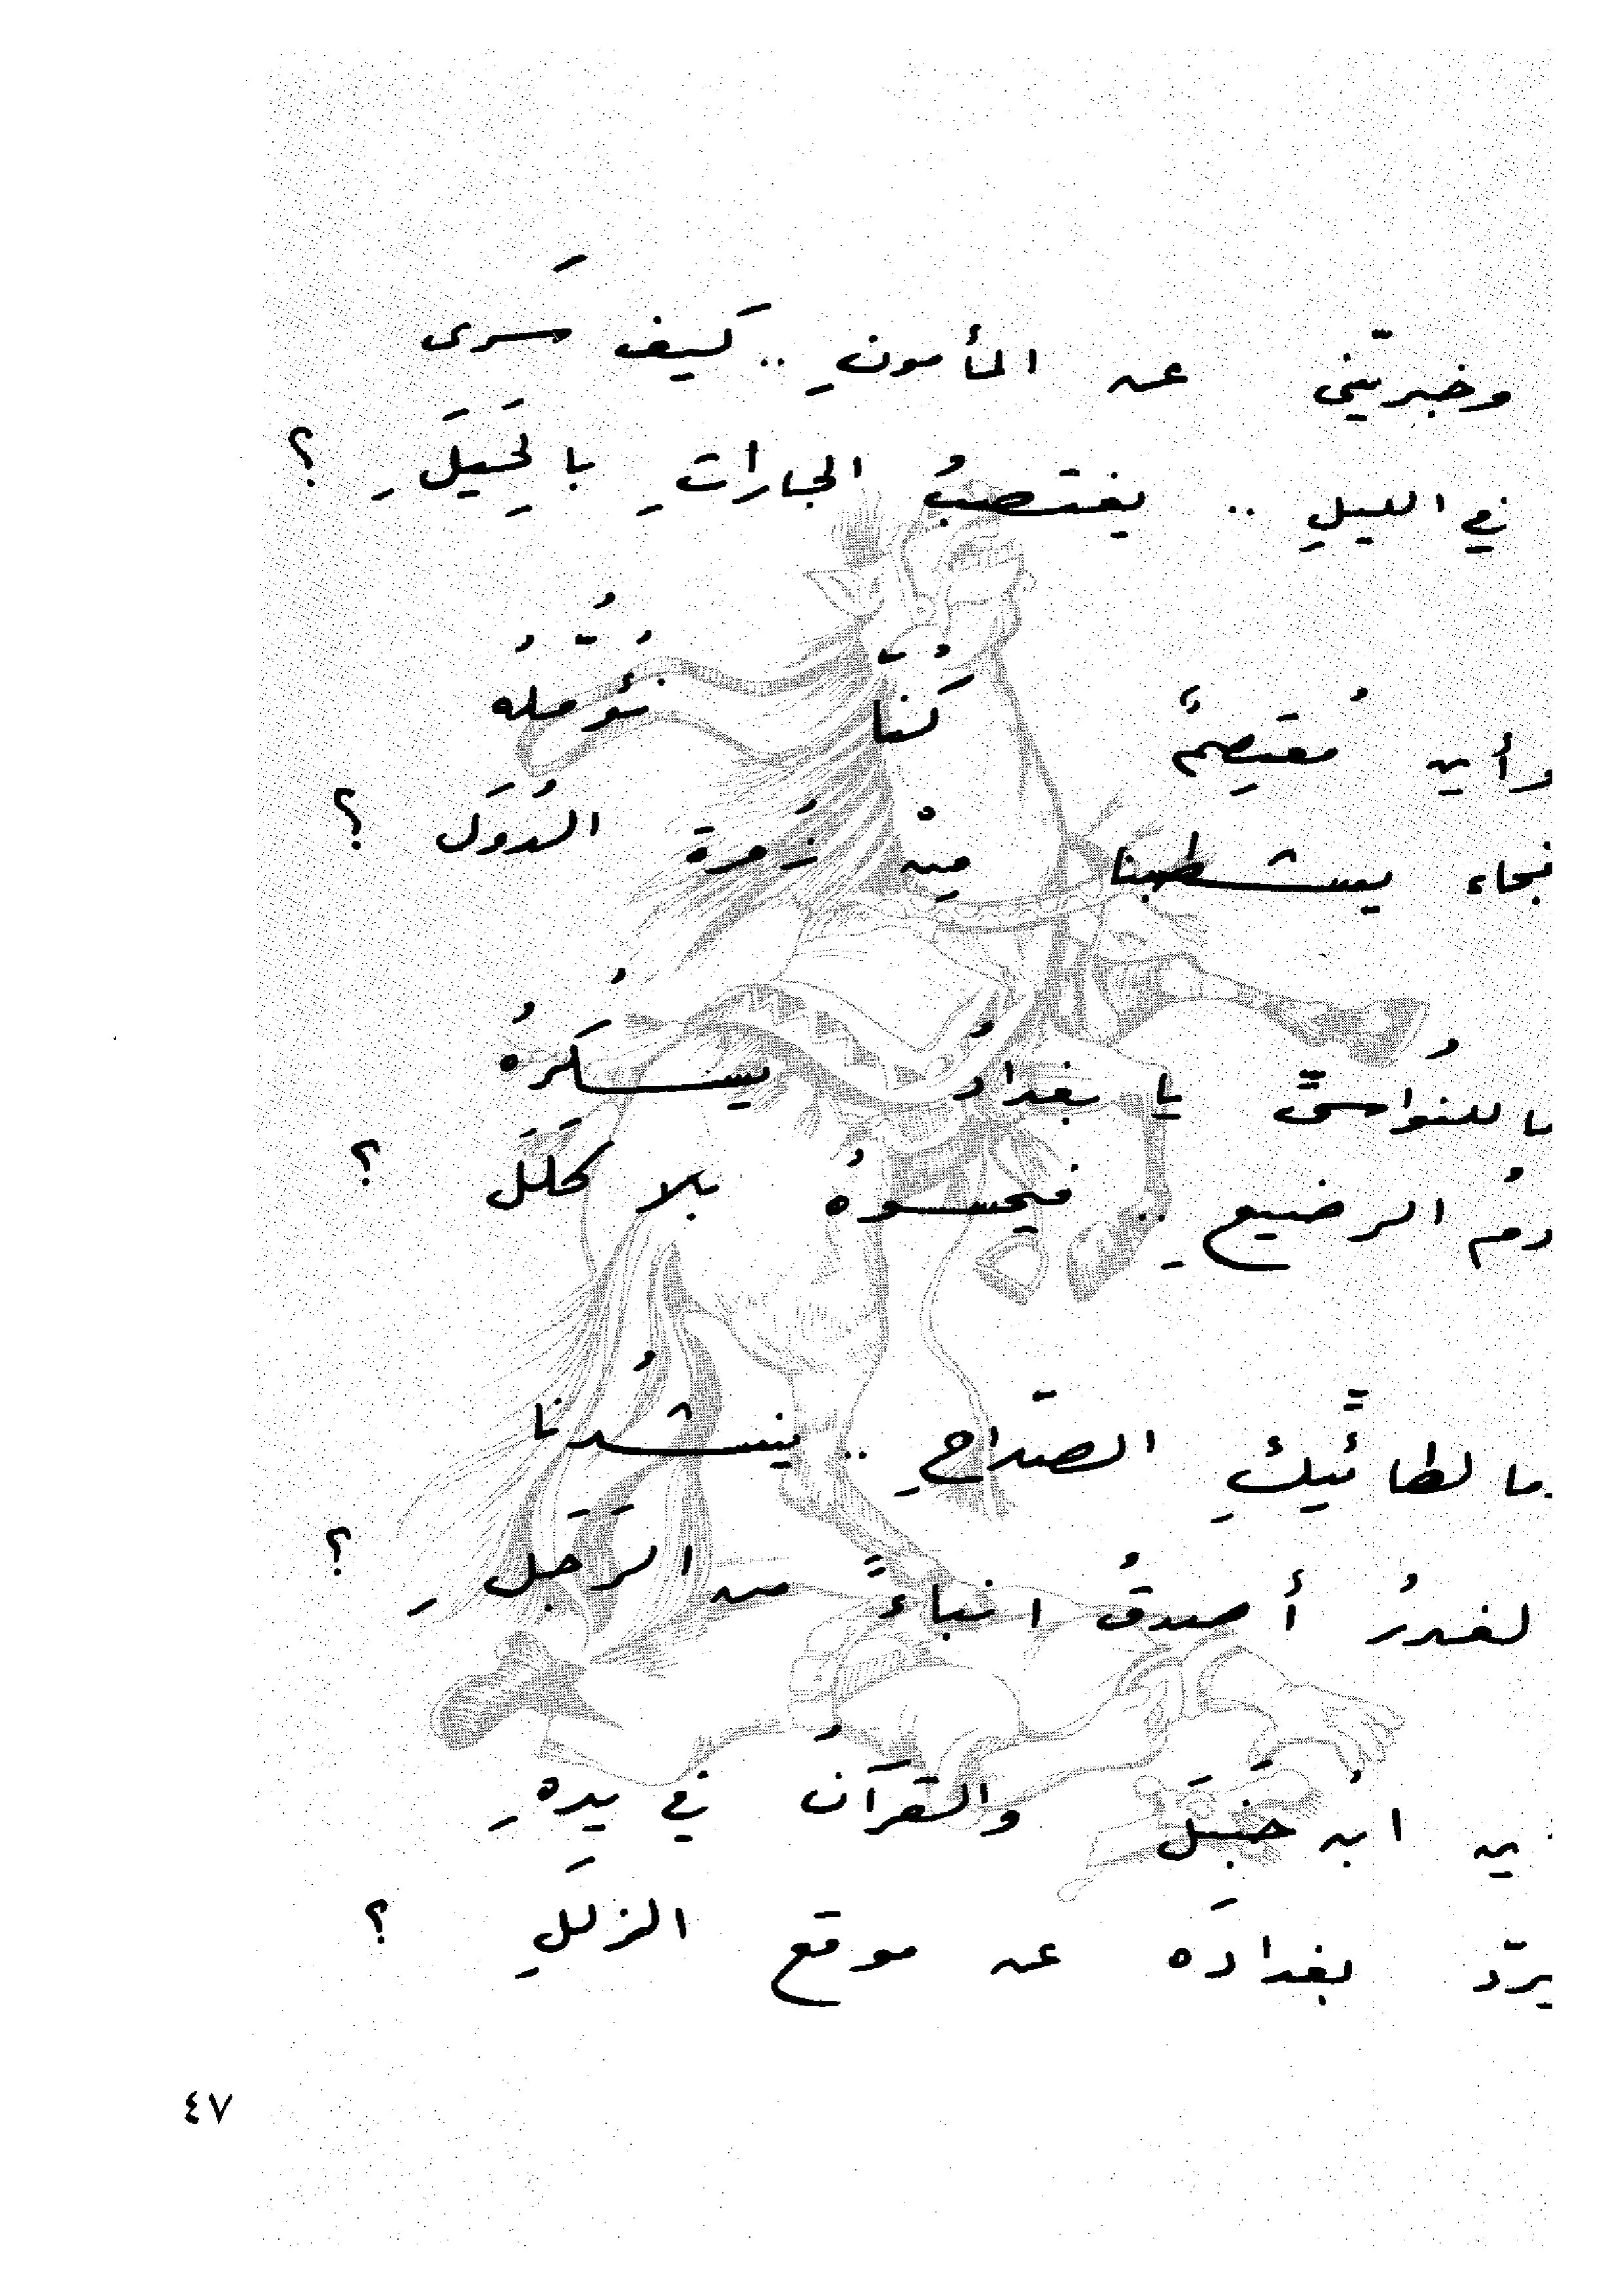 وخبريّني عن المأمونِ .. كيفَ سَرى
في الليلِ .. يغتصبُ الجاراتِ بالحِيَلِ ؟
وأين مُعتصِمٌ كُنّا نُؤمّلُهُ
فجاء يشطبنا مِنْ زُمرة الدُوَل ؟
ما للنُواسيّ يا بغدادُ يسكرُهُ
دمُ الرضيعِ .. فيحسوهُ بلا كَلَل ؟
ما لطائيّكِ الصدّاحِ .. ينشدُنا
لغدرُ أصدقُ انباءً من الرَجَلِ ؟
ين ابنُ حَنبَل والقرآنُ في يدِهِ
يردّ بغدادَه عن موقع الزلَلِ ؟
٤٧